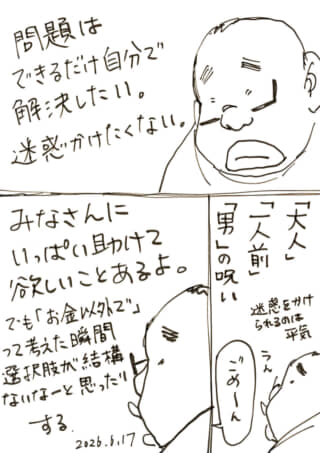 問題は
できるだけ自分で
解決したい。
迷惑かけたくない。
「大人」
「一人前」
「男」の呪い
迷惑をかけ
られるのは
平気
うん
ごめーん
みなさんに
いっぱい助けて
欲しいことあるよ。
でも「お金以外で」
って考えた瞬間
選択肢が結構
ないなーと思ったり
する。
2026.6.17